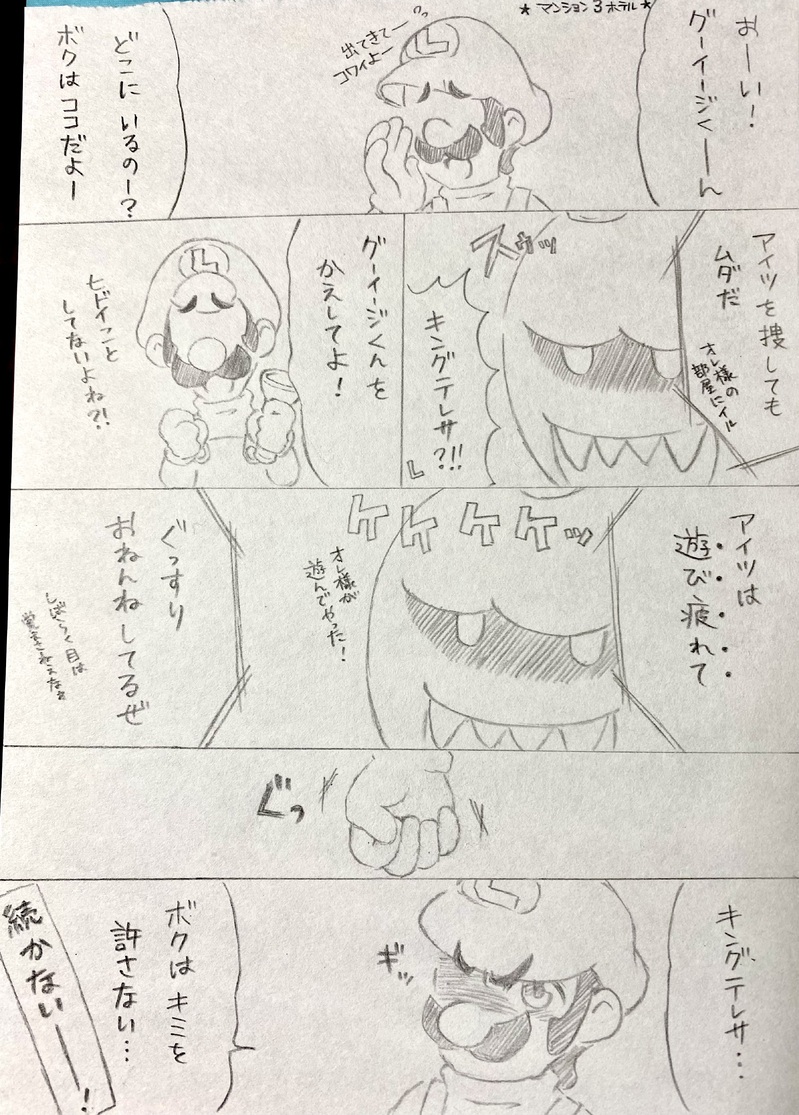 ★マンション3ホテル★
おーい！
グーイージくーん
出てきてー
コワイよー
どこにいるのー？
ボクはココだよー
アイツを捜しても
ムダだ
オレ様の
部屋にイル
ズゥッ
キングテレサ?!!
グーイージくんを
かえしてよ！
ヒドイこと
してないよね?!
アイツは
遊び疲れて
ケケケケッ
オレ様が
遊んでやった！
ぐっすり
おねんねしてるぜ
しばらく目は
覚まさねぇなぁ
ぐっ
キングテレサ…
ギッ
ボクはキミを
許さない…
続かないーー！